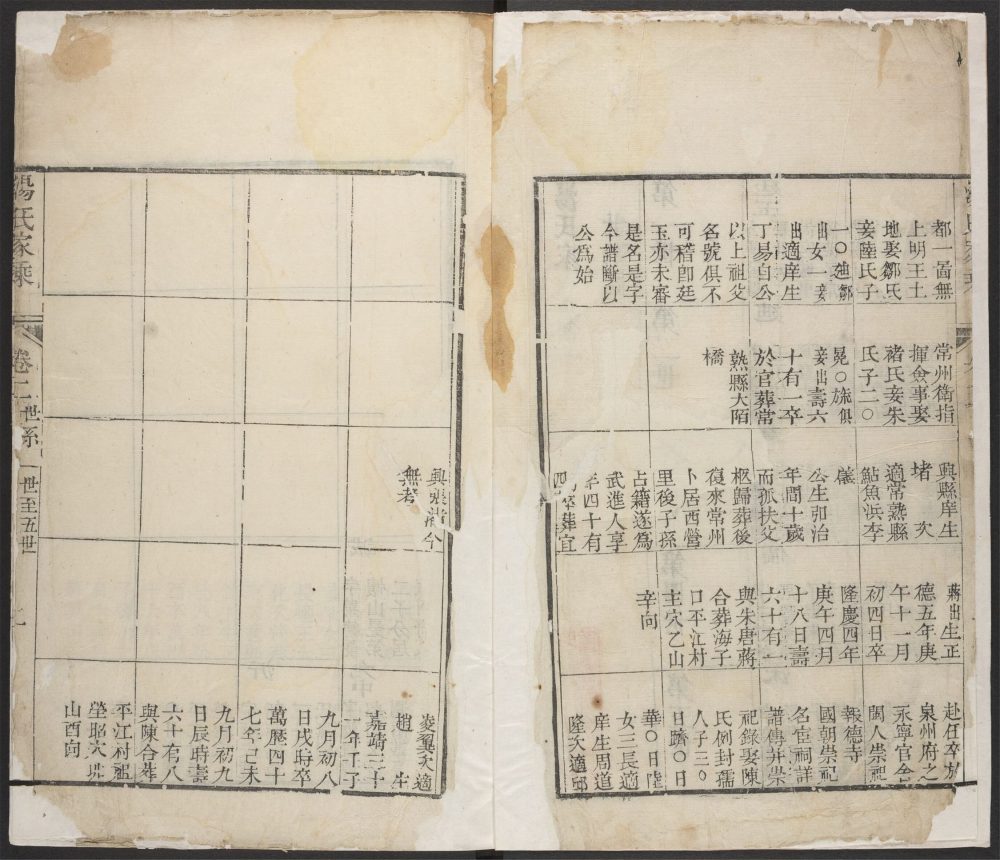 都一啚無
上明王土
地娶鄒氏
妾陸氏子
一〇廸鄒
出女一妾
出適庠生
丁易自公
以上祖父
名號俱不
可稽卽廷
玉亦未審
是名是字
今譜斷以
公爲始
常州衛指
揮僉事娶
褚氏妾朱
氏子二〇
晃〇旂俱
妾出壽六
十有一卒
於官葬常
熟縣大陌
橋
興縣庠生
堵 次
適常熟縣
鮎魚浜李
儀
公生弘治
年間十歲
而孤扶父
柩歸葬後
復來常州
卜居西營
里後子孫
占籍遂爲
武進人享
年四十有
四卒葬宜
興張渚今
無考
蔣出生正
德五年庚
午十一月
初四日卒
隆慶四年
庚午四月
十八日壽
六十有一
與朱唐蔣
合葬海子
口平江村
主穴乙山
辛向
赴任卒於
泉州府之
永寧官舍
閩人崇祀
報德寺
國朝崇祀
名宦祠詳
譜傳幷崇
祀錄娶陳
氏例封孺
人子三〇
日躋〇日
華〇日陞
女三長適
庠生周道
隆次適邱
凌翼次適
趙 生
嘉靖三十
一年壬子
九月初八
日戌時卒
萬歷四十
七年己未
九月初九
日辰時壽
六十有八
與陳合葬
平江村祖
塋昭穴艮
山酉向
湯氏家乘
卷二 世系 一世至五世